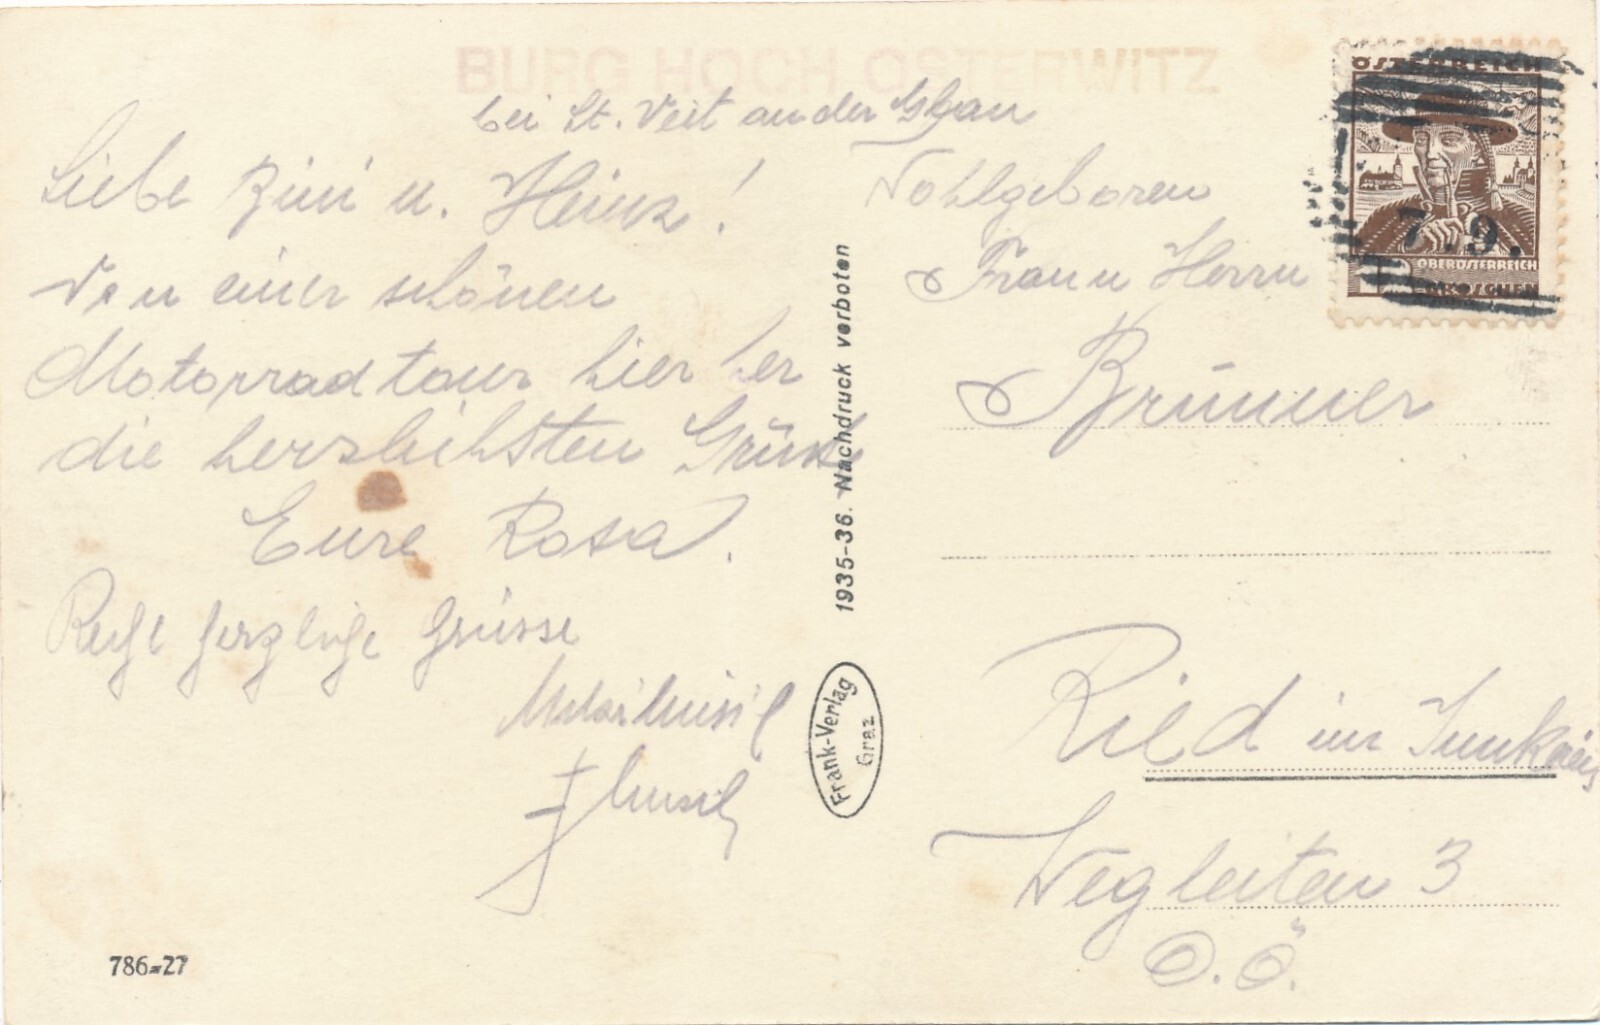 BURG HOCH OSTERWITZ
bei St. Veit an der Glan
Liebe Zini u. Heinz!
Von einer schönen
Motorradtour hier her
die herzlichsten Grüsse
Eure Rosa.
Recht herzliche Grüsse
786-27
1935-36. Nachdruck verboten
Frank-Verlag
Graz
ÖSTERREICH
7.9.
OBERÖSTERREICH
GROSCHEN
Wohlgeboren
Frau u Herrn
Brünner
Ried im Innkreis
Wegleiten 3
O.Ö.